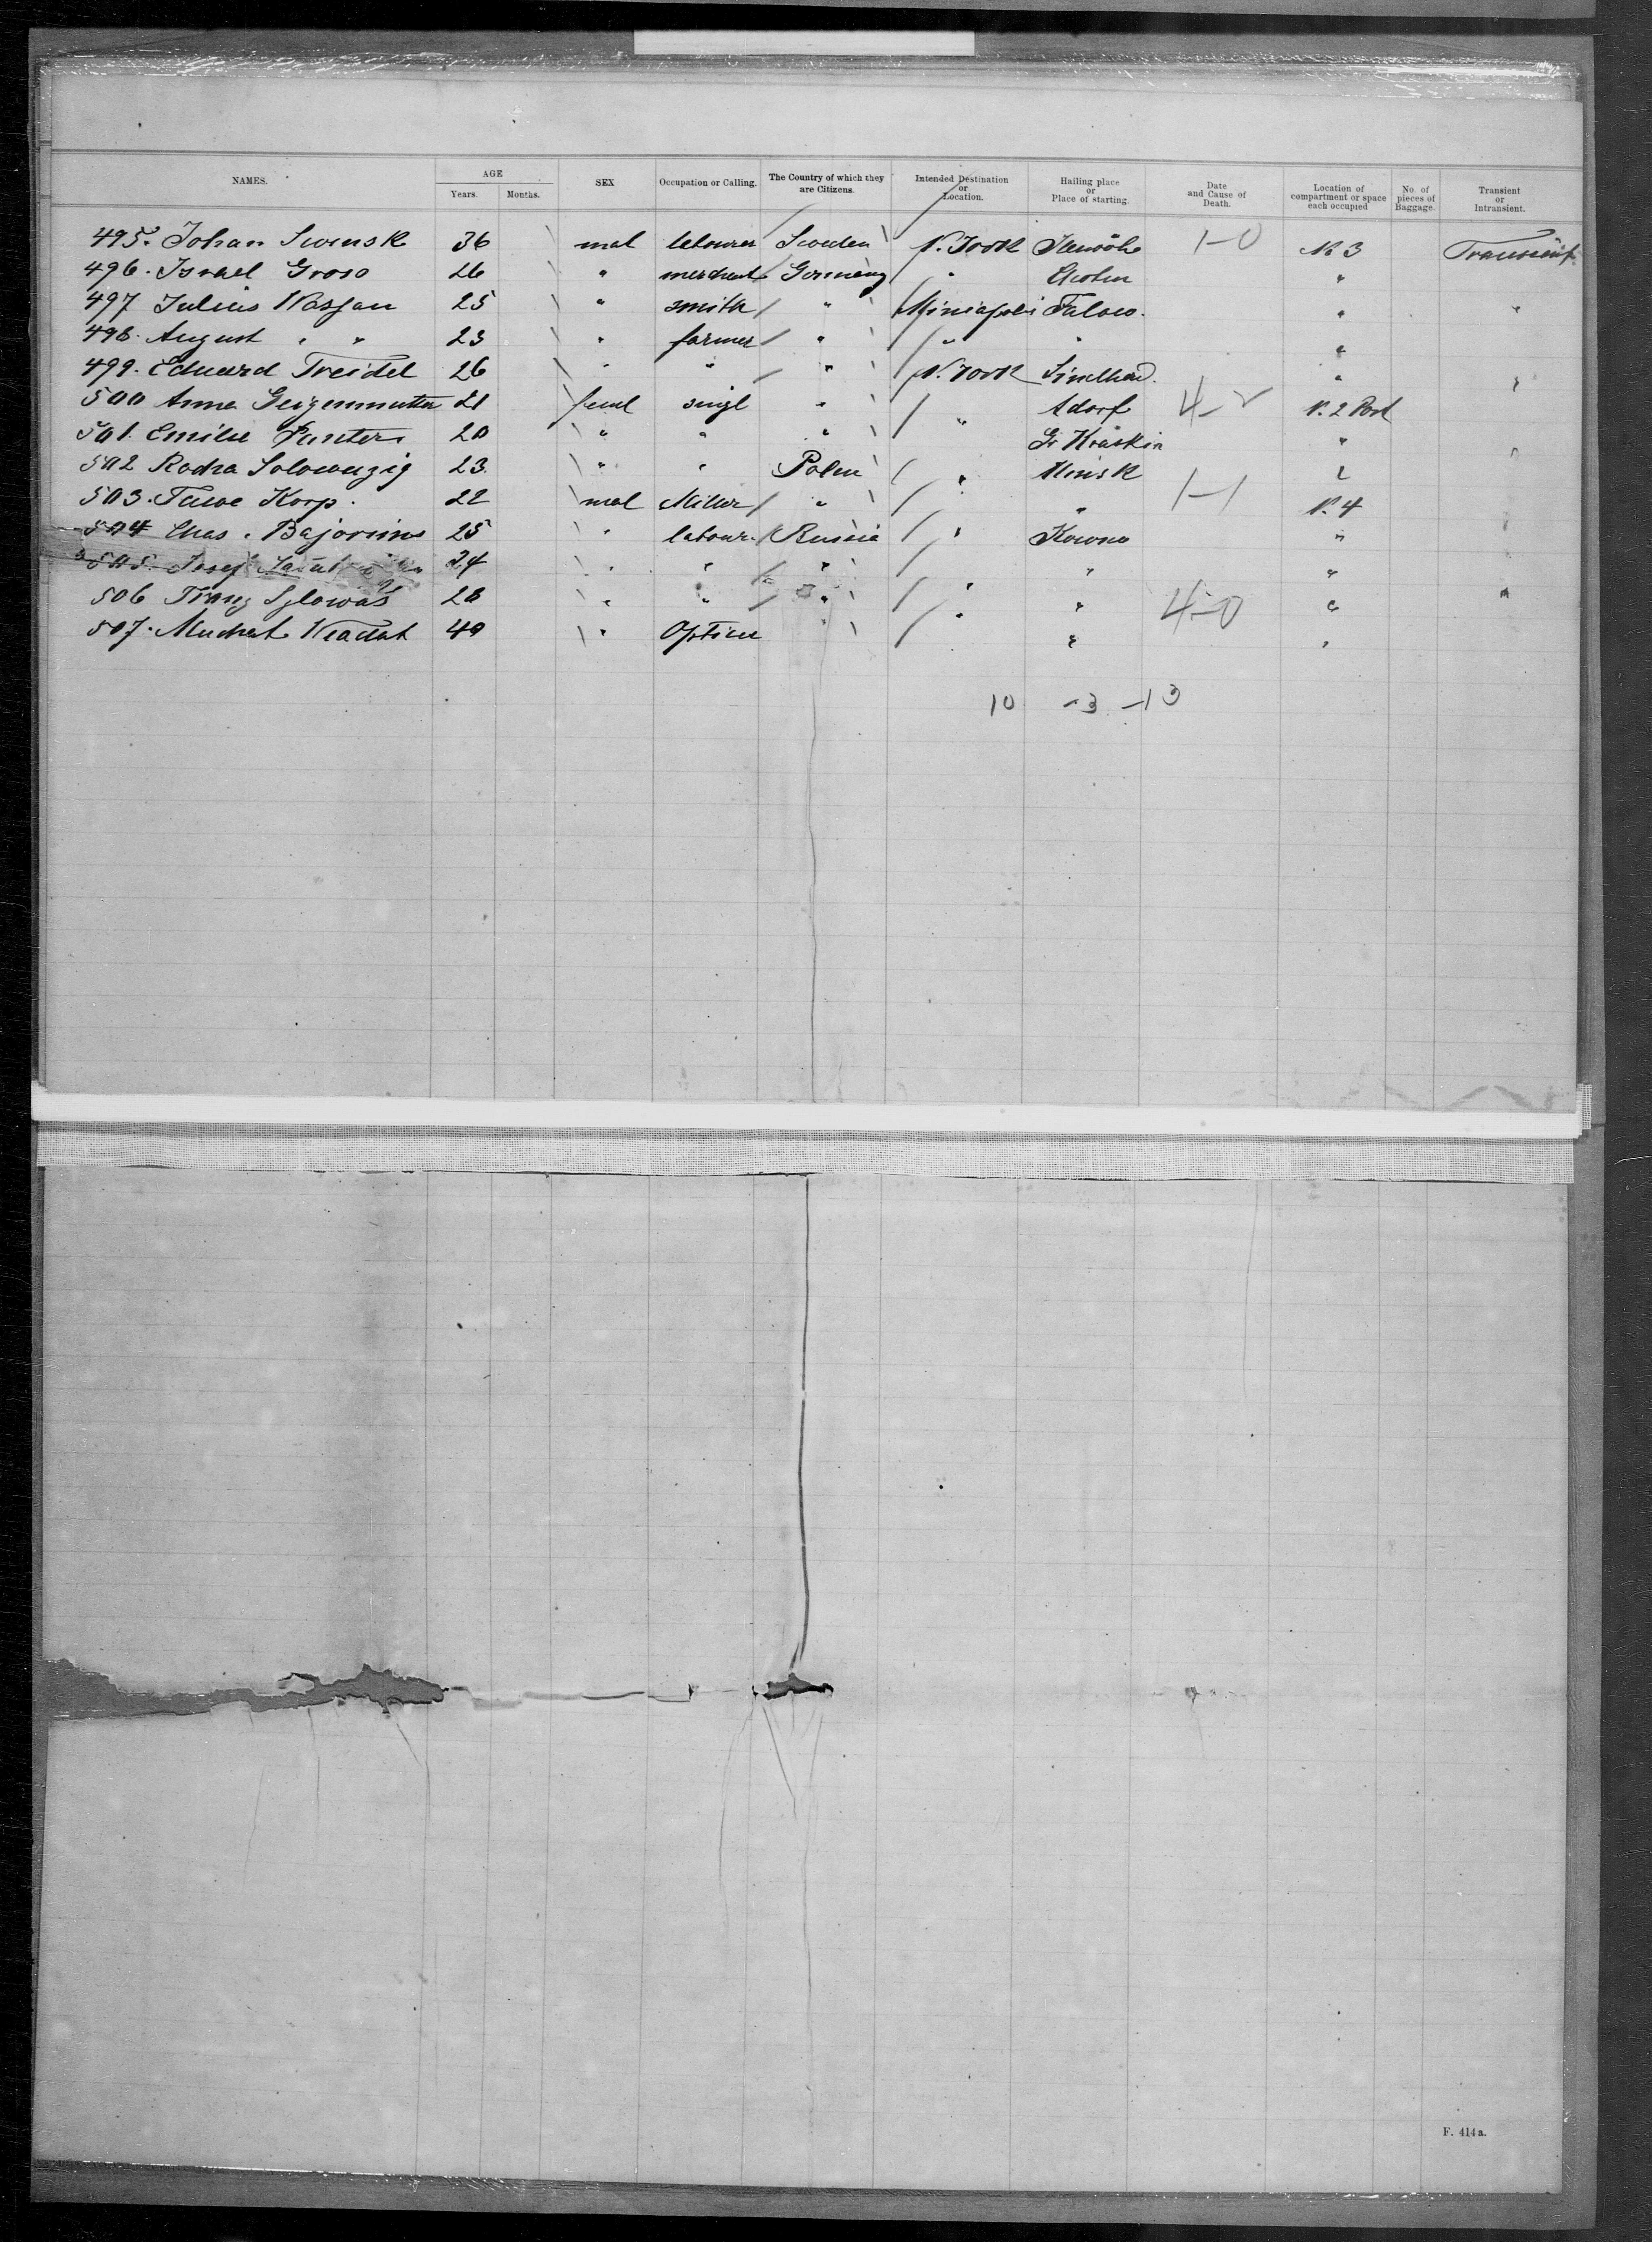 NAMES. AGE Years. Months. SEX Occupation or Calling. The Country of which they are Citizens. Intended Destination or Location. Hailing place or Place of starting. Date and Cause of Death. Location of compartment or space each occupied No. of pieces of Baggage. Transient or Intransient.
495. Johan Swensk 36 mal labourer Sweden N. York 1-0 N. 3 Transient
496. Israel Gross 26 " merchant Germany " "
497 Julius Wassan 25 " smith " Miniapoli Falow. " "
498. August " " 23 " farmer " " " "
499. Eduard Treidel 26 " " " N. York " "
500 Anna Geigenmutter 21 feml singl " " Adorf 4-2 N. 2 Port
501. Emilie Punters 20 " " " Gr Kraskin " "
502 Rocha Solowezig 23. " " Polen " Minsk "
503. Tawe Korp. 22 mal Miller " " " 1-1 N. 4
504 Chas. Bajorims 25 " labour. Russia " Kowno " "
505. Josef 24 " " " " " "
506 Franz Szlowas 28 " " " " " 4-0 " "
507. 40 " Opticer " " " "
10 -3 -13
F. 414a.